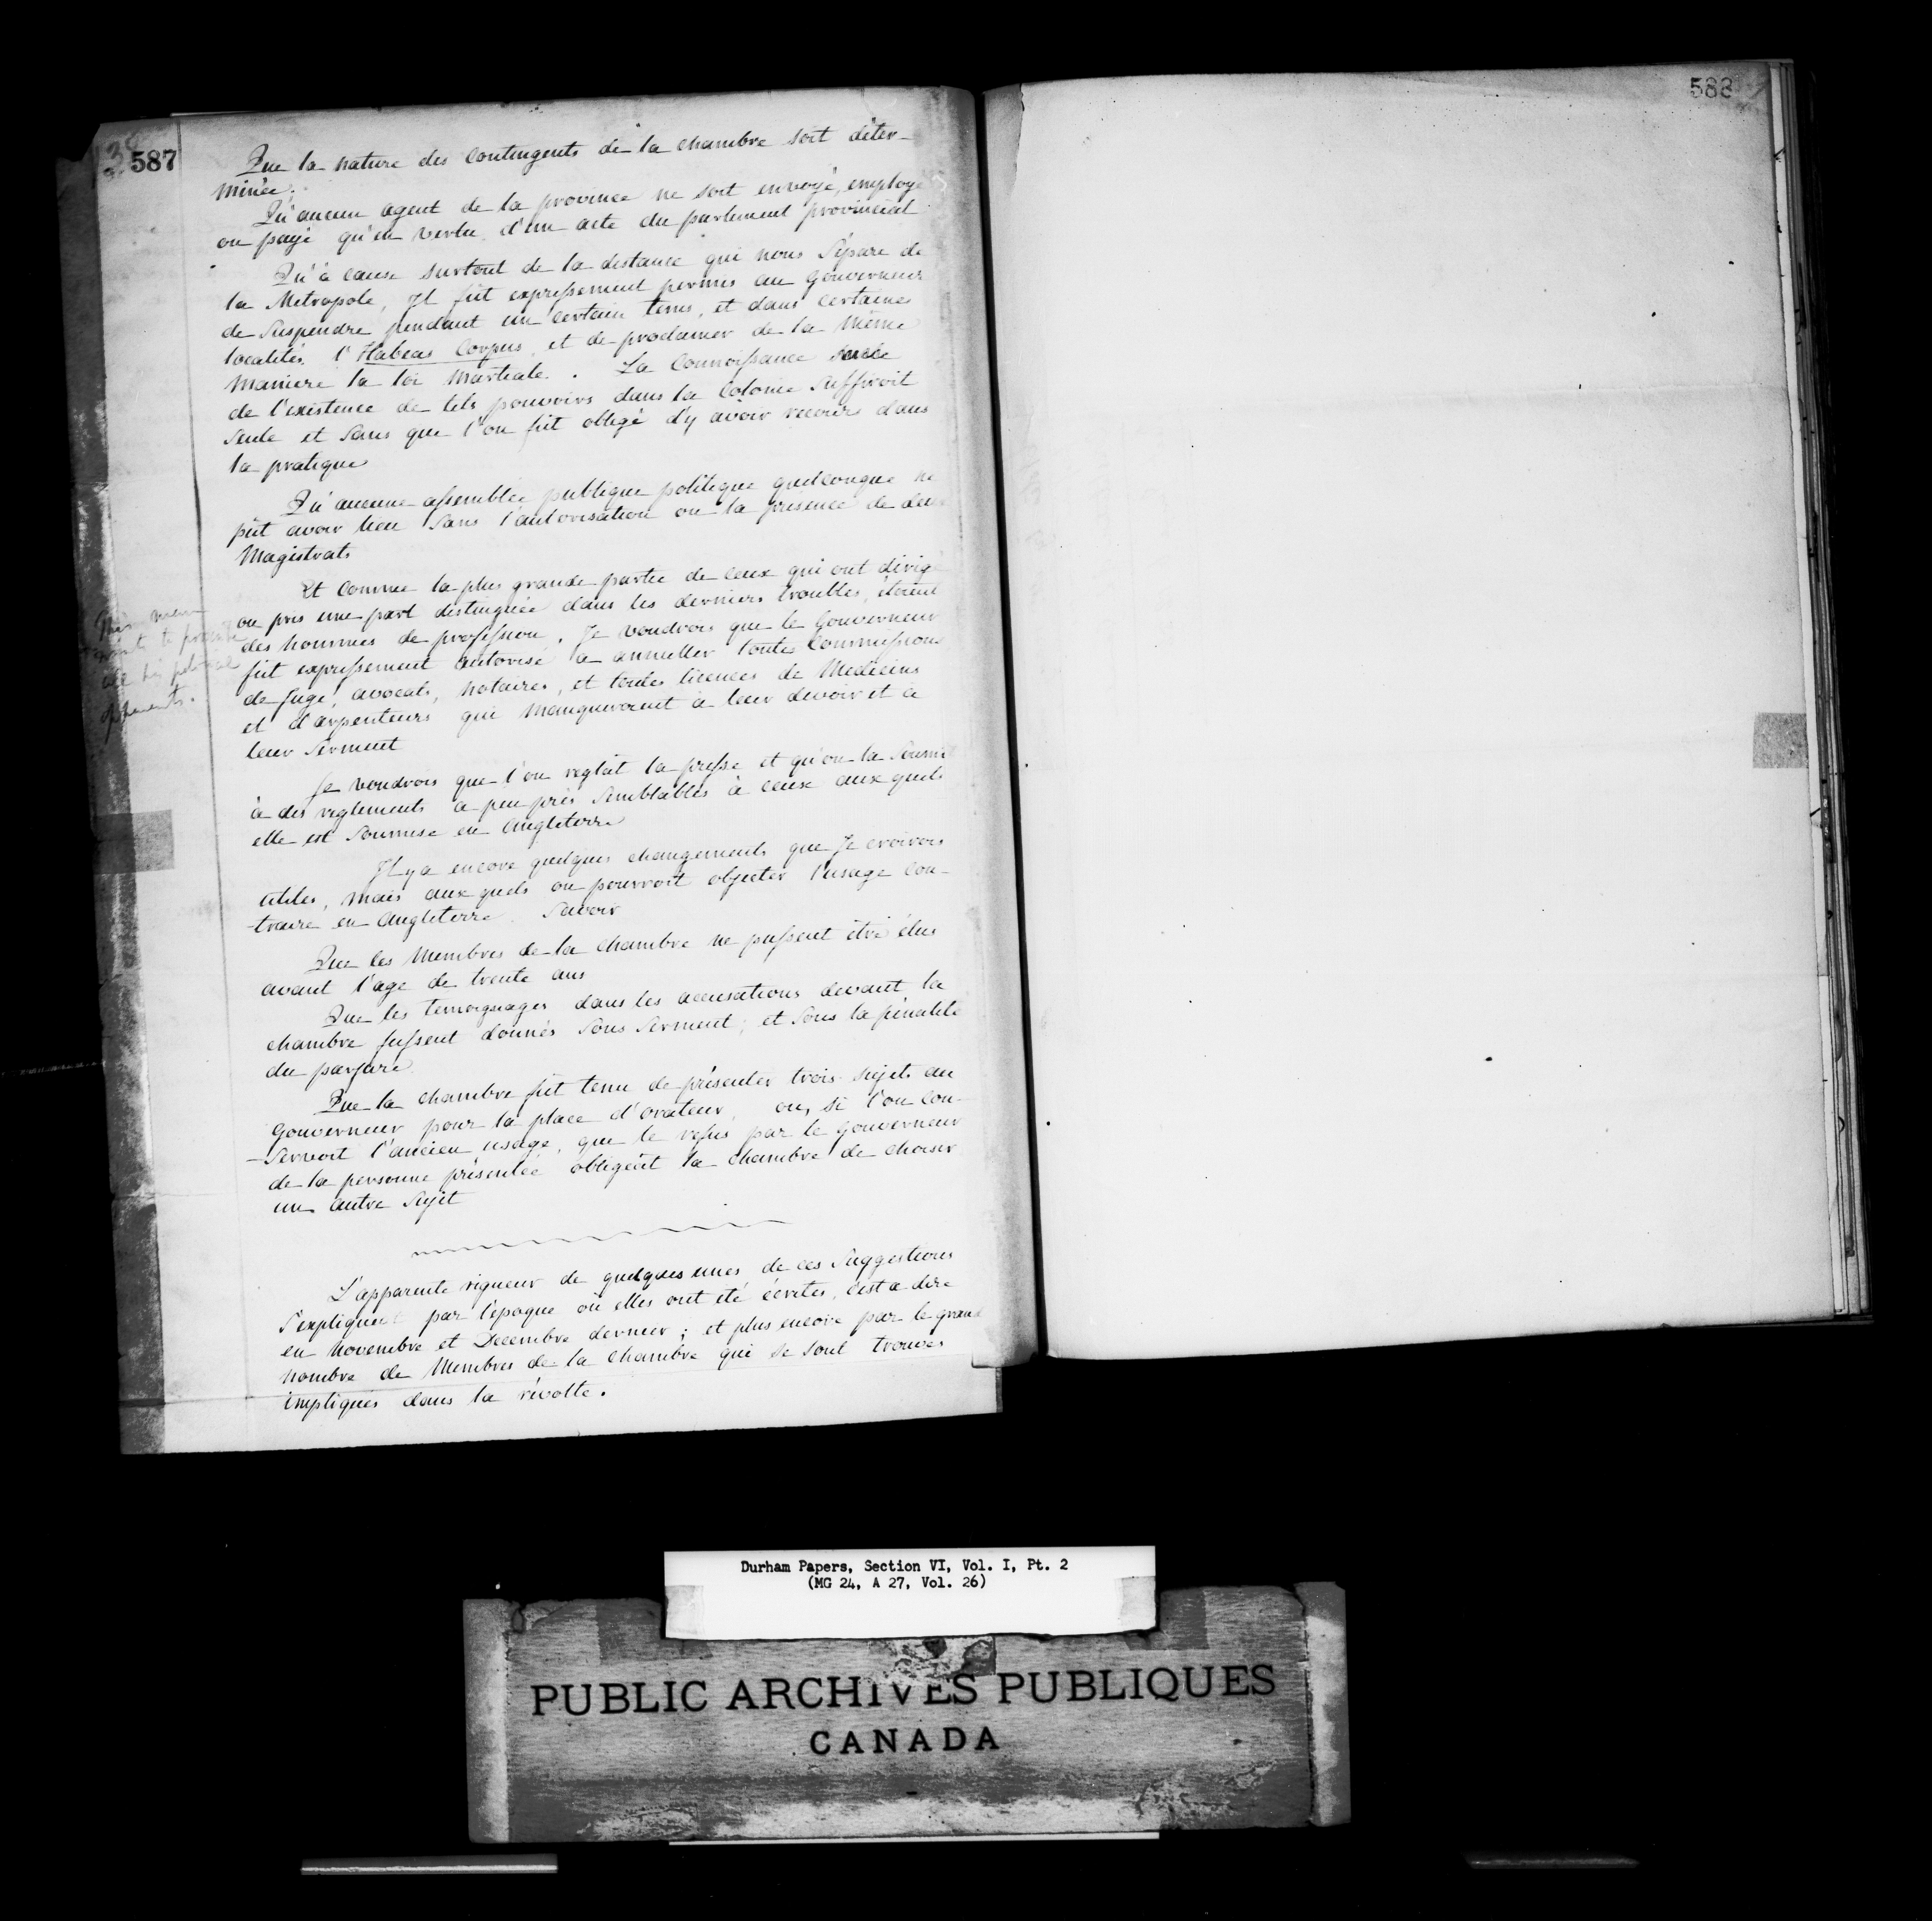 587
Que la nature des Contingents de la chambre soit déter-
minée.
Qu'aucun agent de la province ne soit envoyé, employé
ou payé qu'en vertu d'un acte du parlement provincial
Qu'à cause surtout de la distance qui nous Sépare de
la Metropole, Il fût expressement permis au Gouverneur
de Suspendre pendant un certain tems, et dans certaines
localités l'Habeas Corpus, et de proclamer de la même
maniere la loi Martiale. La Connoissance seule
de l'existence de tels pouvoirs dans la Colonie Suffiroit
Seule et Sans que l'on fut obligé d'y avoir recours dans
la pratique
Qu'aucune assemblée publique politique quelconque ne
pût avoir lieu Sans l'autorisation ou la présence de deux
Magistrats
Et Comme la plus grande partie de ceux qui ont dirigé
ou pris une part distinguée dans les derniers troubles, étoient
des hommes de profession, Je voudrois que le Gouverneur
fût expressement autorisé à annuller toutes Commissions
de Juge, avocats, notaires, et toutes licences de Medecins
et d'arpenteurs qui manqueroient à leur devoir et à
leur Serment
Je voudrois que l'on reglât la presse et qu'on la Soumit
à des reglements à peu près Semblables à ceux aux quels
elle est Soumise en Angleterre
Il y a encore quelques changements que Je croirois
utiles, mais aux quels on pourroit objecter l'usage Con-
-traire en Angleterre. Savoir
Que les Membres de la Chambre ne pussent être élus
avant l'age de trente ans
Que les temoignages dans les accusations devant la
chambre fussent donnés Sous Serment; et Sous la pénalité
du parjure
Que la chambre fût tenu de présenter trois sujets au
Gouverneur pour la place d'orateur, ou, si l'on Con-
-servoit l'ancien usage, que le refus par le Gouverneur
de la personne présentée obligeât la Chambre de choisir
un autre Sujet
L'apparente rigueur de quelques unes de ces Suggestions
S'expliquent par l'epoque où elles ont été écrites, c'est a dire
en Novembre et Decembre dernier; et plus encore par le grand
nombre de Membres de la Chambre qui se sont trouvés
impliqués dans la révolte.
This man
all his political
opponents.
588
Durham Papers, Section VI, Vol. I, Pt. 2
(MG 24, A 27, Vol. 26)
PUBLIC ARCHIVES PUBLIQUES
CANADA